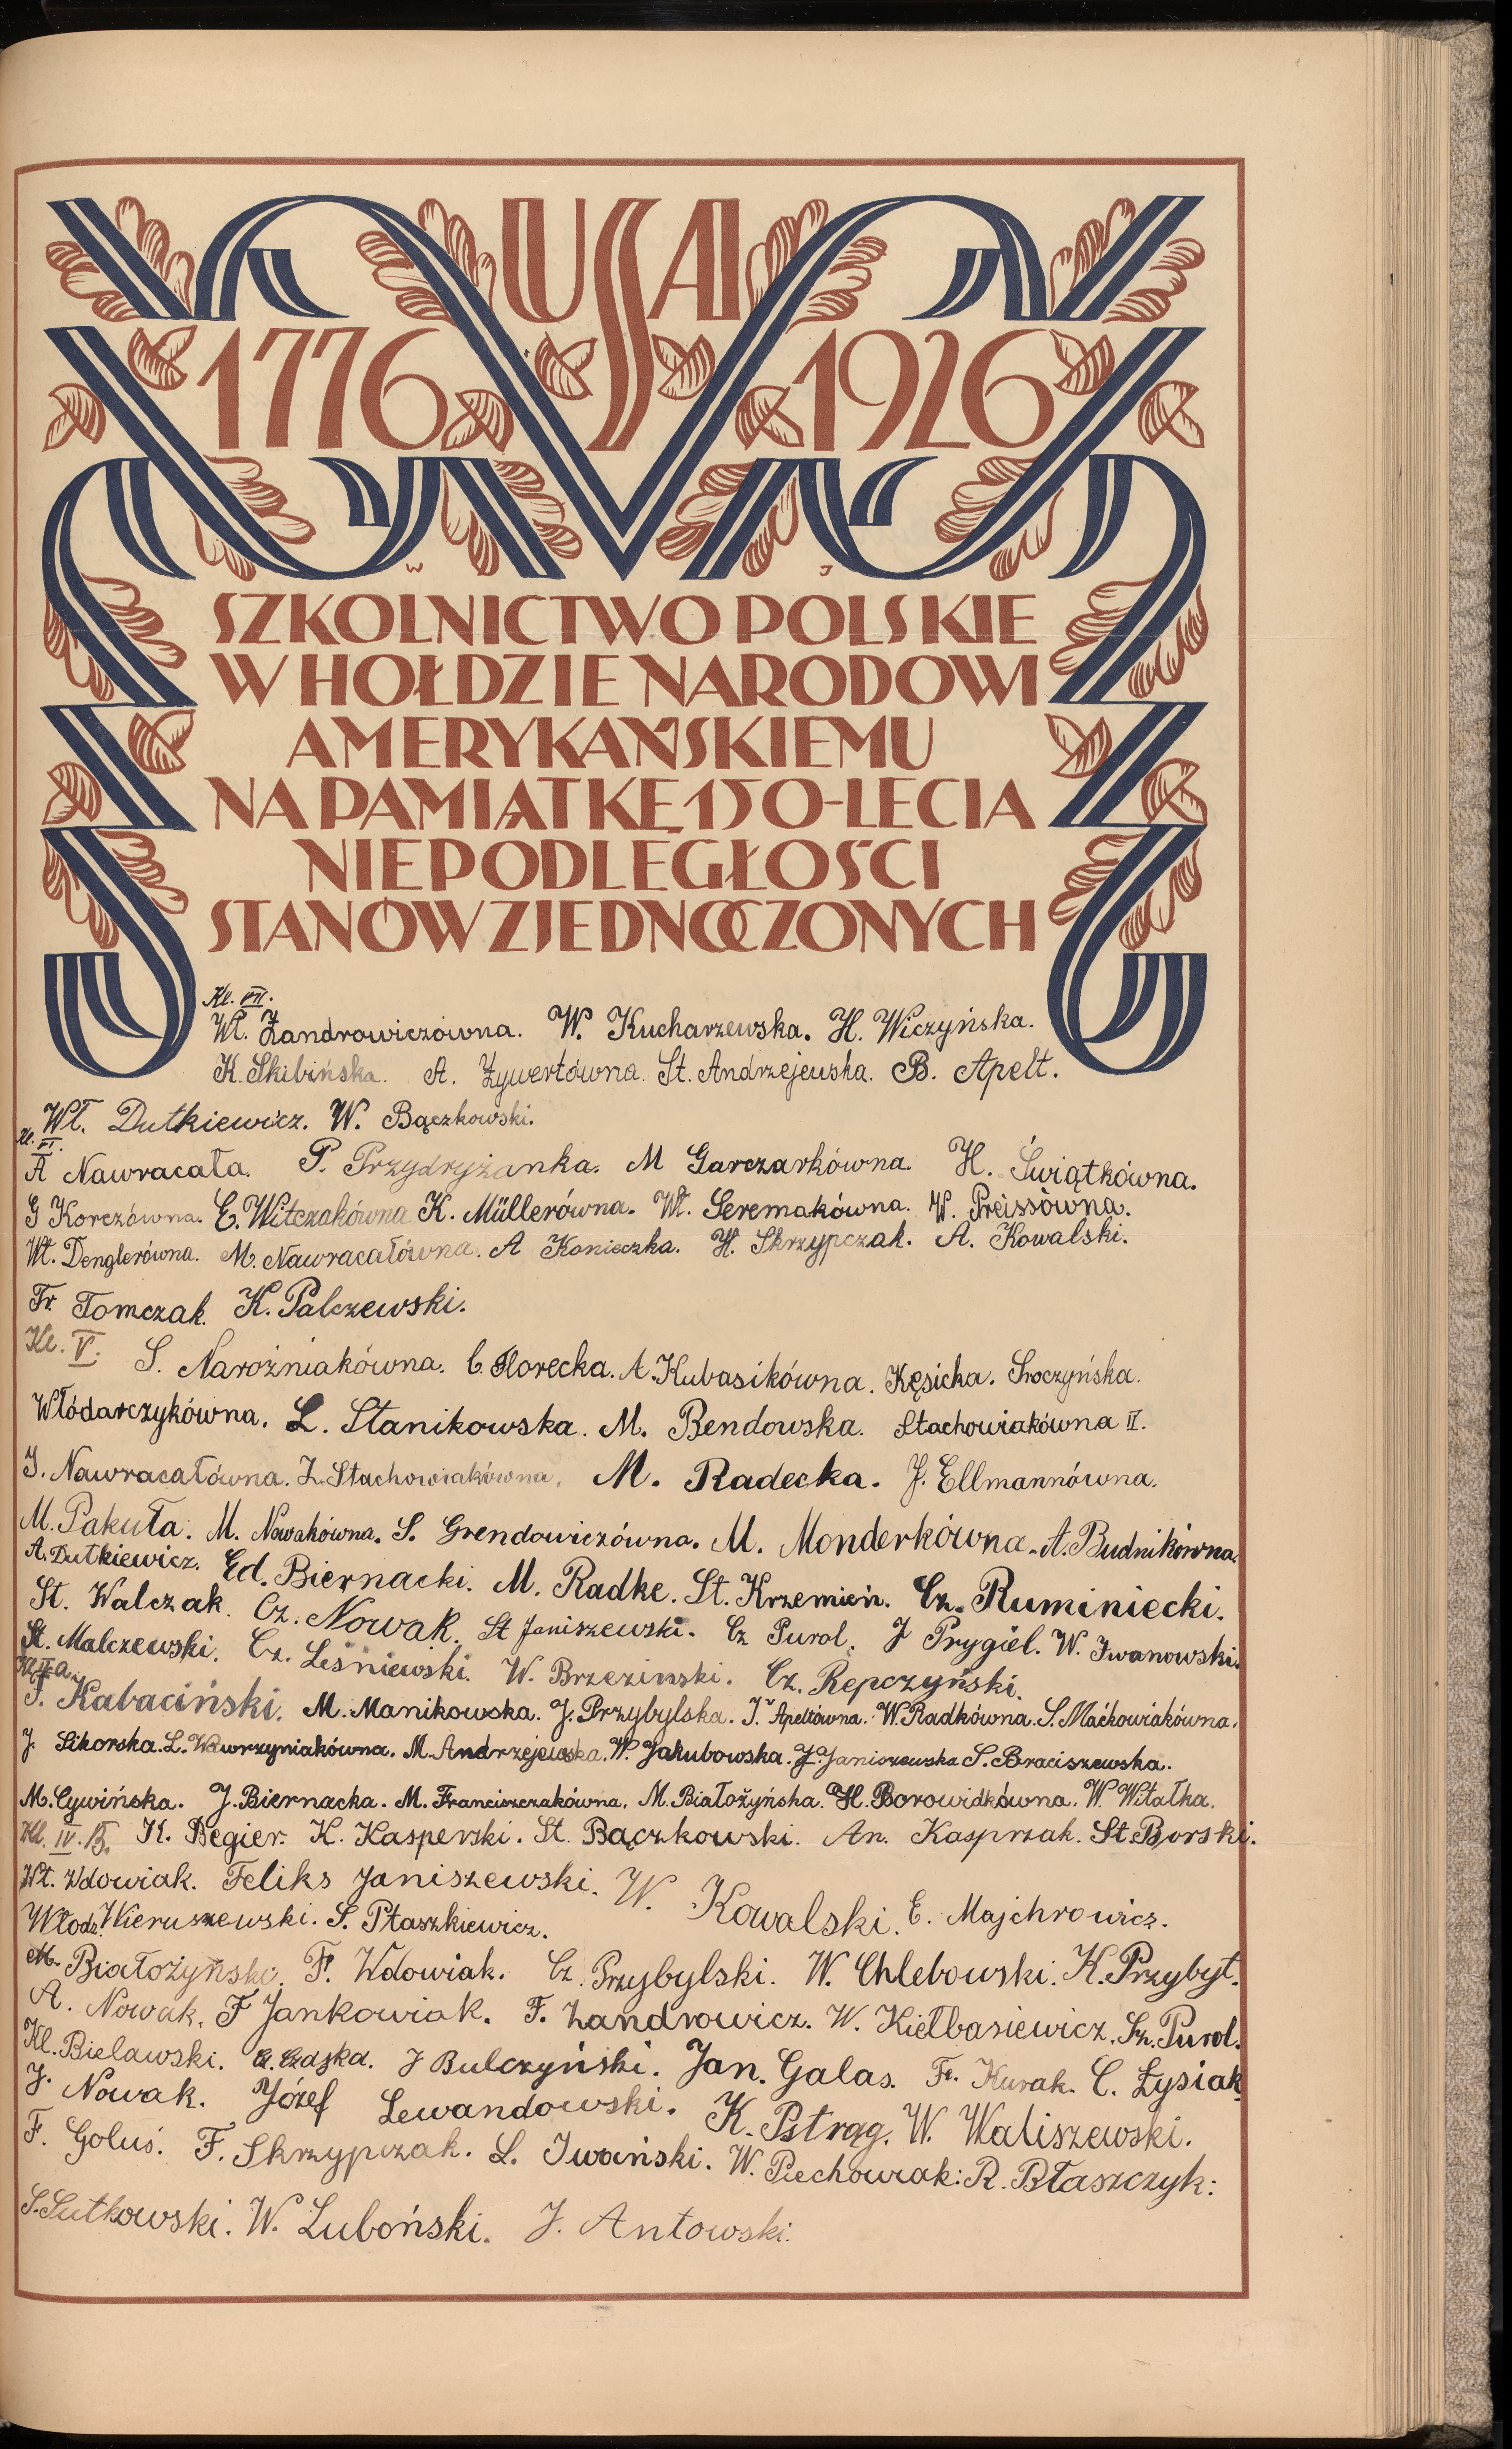 USA
1776 1926
W J
SZKOLNICTWO POLSKIE
W HOŁDZIE NARODOWI
AMERYKAŃSKIEMU
NA PAMIĄTKĘ 150-LECIA
NIEPODLEGŁOŚCI
STANÓW ZJEDNOCZONYCH
Kl. VII.
Wł. Żandrowiczówna. W. Kucharzewska. H. Wiczyńska.
K. Skibińska. A. Żywertówna. St. Andrzejewska. B. Apelt.
Wł. Dutkiewicz. W. Bączkowski.
Kl. VI.
A Nawracała. P. Przydryżanka. M Garczarkówna. H. Świątkówna.
G Korczówna. E. Witczakówna K. Müllerówna. Wł. Seremakówna. W. Preissówna.
Wł. Denglerówna. M. Nawracałówna. A Konieczka. H. Skrzypczak. A. Kowalski.
Fr. Tomczak. K. Palczewski.
Kl. V. S. Narożniakówna. C. Florecka. A. Kubasikówna. Kęsicka. Sroczyńska.
Włódarczykówna. L. Stanikowska. M. Bendowska. Stachowiakówna II.
J. Nawracałówna. Z. Stachowiakówna. M. Radecka. J. Ellmannówna.
M. Pakuła. M. Nowakówna. S. Grendowiczówna. M. Monderkówna. A. Budnikówna.
A. Dutkiewicz. Ed. Biernacki. M. Radke. St. Krzemień. Cz. Ruminiecki.
St. Walczak. Cz. Nowak. St Janiszewski. Cz Purol. J Prygiel. W. Iwanowski.
St. Malczewski. Cz. Leśniewski. W. Brzezinski. Cz. Repczyński.
Kl. IV a.
Kabaciński. M. Manikowska. J. Przybylska. J. Apeltówna. W. Radkówna. S. Maćkowiakówna.
J. Sikorska. L. Wawrzyniakówna. M. Andrzejewska. W. Jakubowska. J. Janiszewska S. Braciszewska.
M. Cywińska. J. Biernacka. M. Franciszczakówna. M. Białożyńska. H. Borowidkówna. W. Witałka.
Kl. IV. B. K. Begier. K. Kasperski. St. Bączkowski. An. Kasprzak. St. Borski.
Wł. Wdowiak. Feliks Janiszewski. W. Kowalski. E. Majchrowicz.
Włodz. Wieruszewski. S. Ptaszkiewicz.
M. Białożyński. F. Wdowiak. Cz. Przybylski. W. Chlebowski. K. Przybył.
A. Nowak. F Jankowiak. F. Żandrowicz. W. Kiełbasiewicz. Sz. Purol.
Kl. Bielawski. J Bulczyński. Jan. Galas. Fr. Kurak. C. Łysiak
J. Nowak. Józef Lewandowski. K. Pstrąg. W. Waliszewski.
F. Goluś. F. Skrzypczak. L. Iwański. W. Piechowiak: R. Błaszczyk:
S. Sutkowski. W. Luboński. J. Antowski.